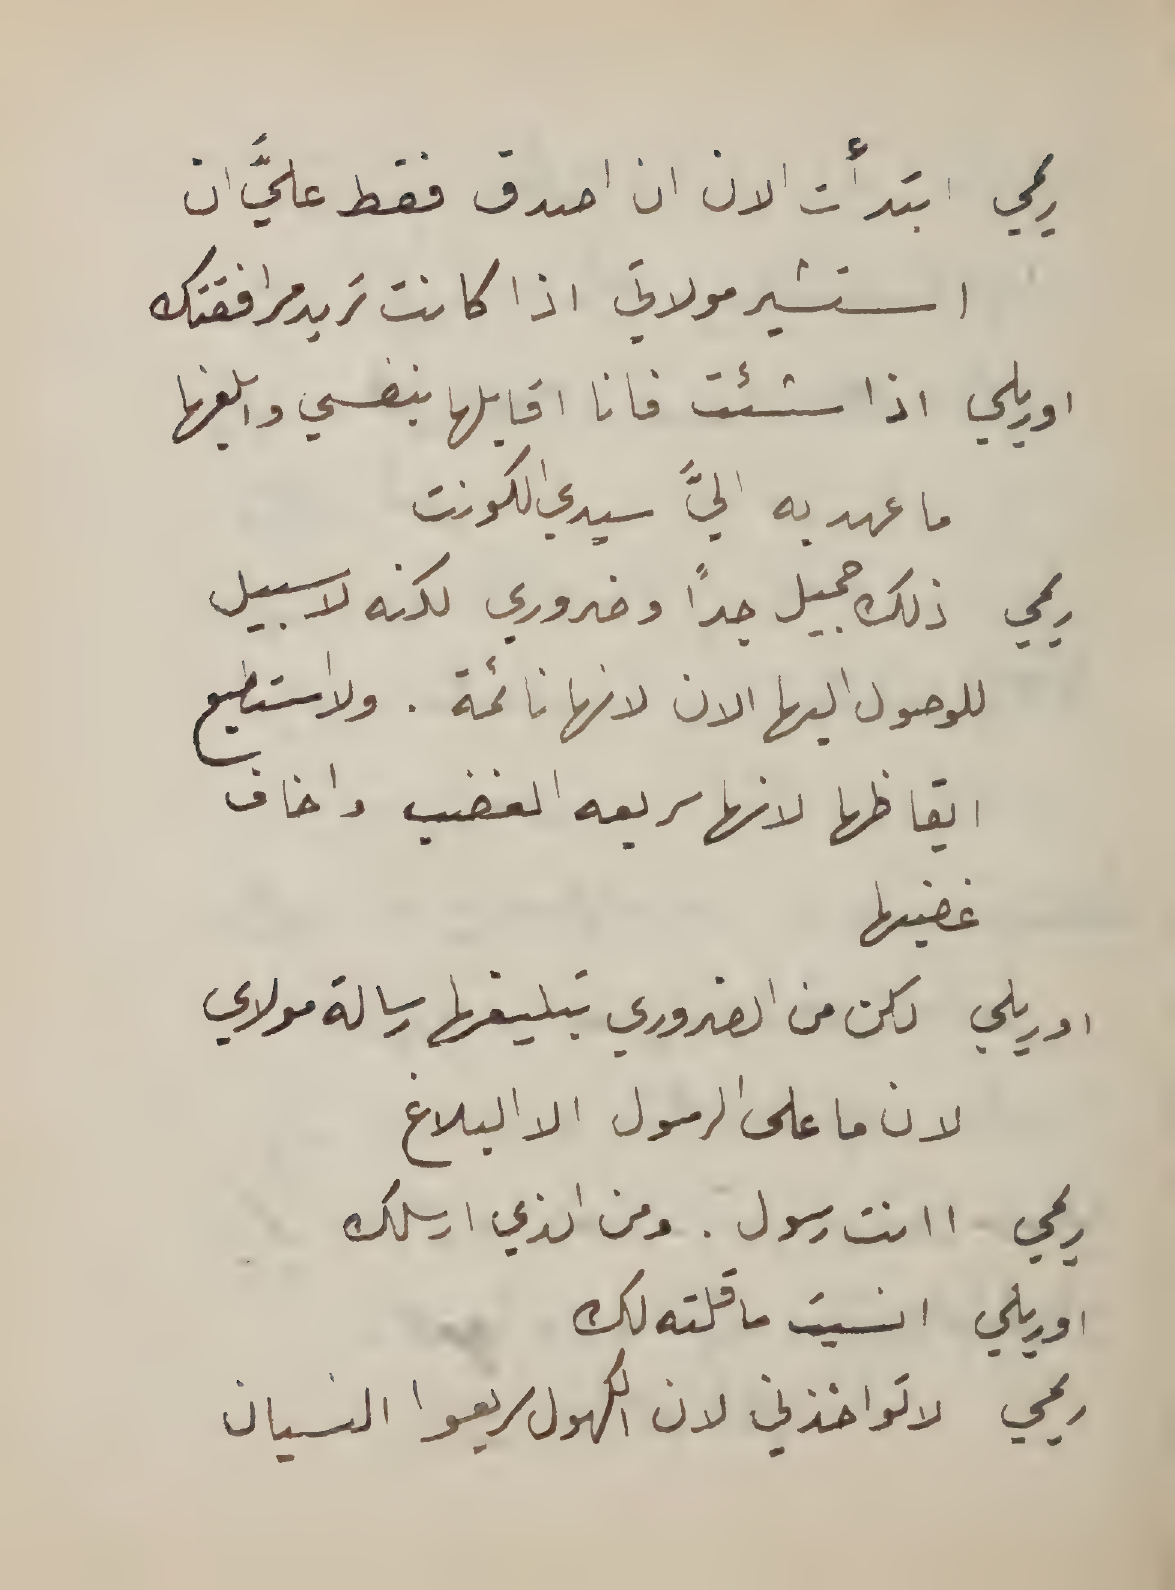 ريمي ابتدأت الان ان اصدق فقط عليَّ ان
استشير مولاتي اذا كانت تريد مرافقتك
اوريلي اذا شئت فانا اقابلها بنفسي وابلغها
ما عهد به اليَّ سيدي الكونت
ريمي ذلك جميل جداً وضروري لكنه لا سبيل
للوصول اليها الان لانها نائمة . ولا استطيع
ايقاظها لانها سريعه الغضب واخاف
غضبها
اوريلي لكن من الضروري تبليغها رسالة مولاي
لان ما على الرسول الا البلاغ
ريمي اانت رسول . ومن الذي ارسلك
اوريلي انسيت ما قلته لك
ريمي لا تواخذني لان الكهول سريعوا النسيان